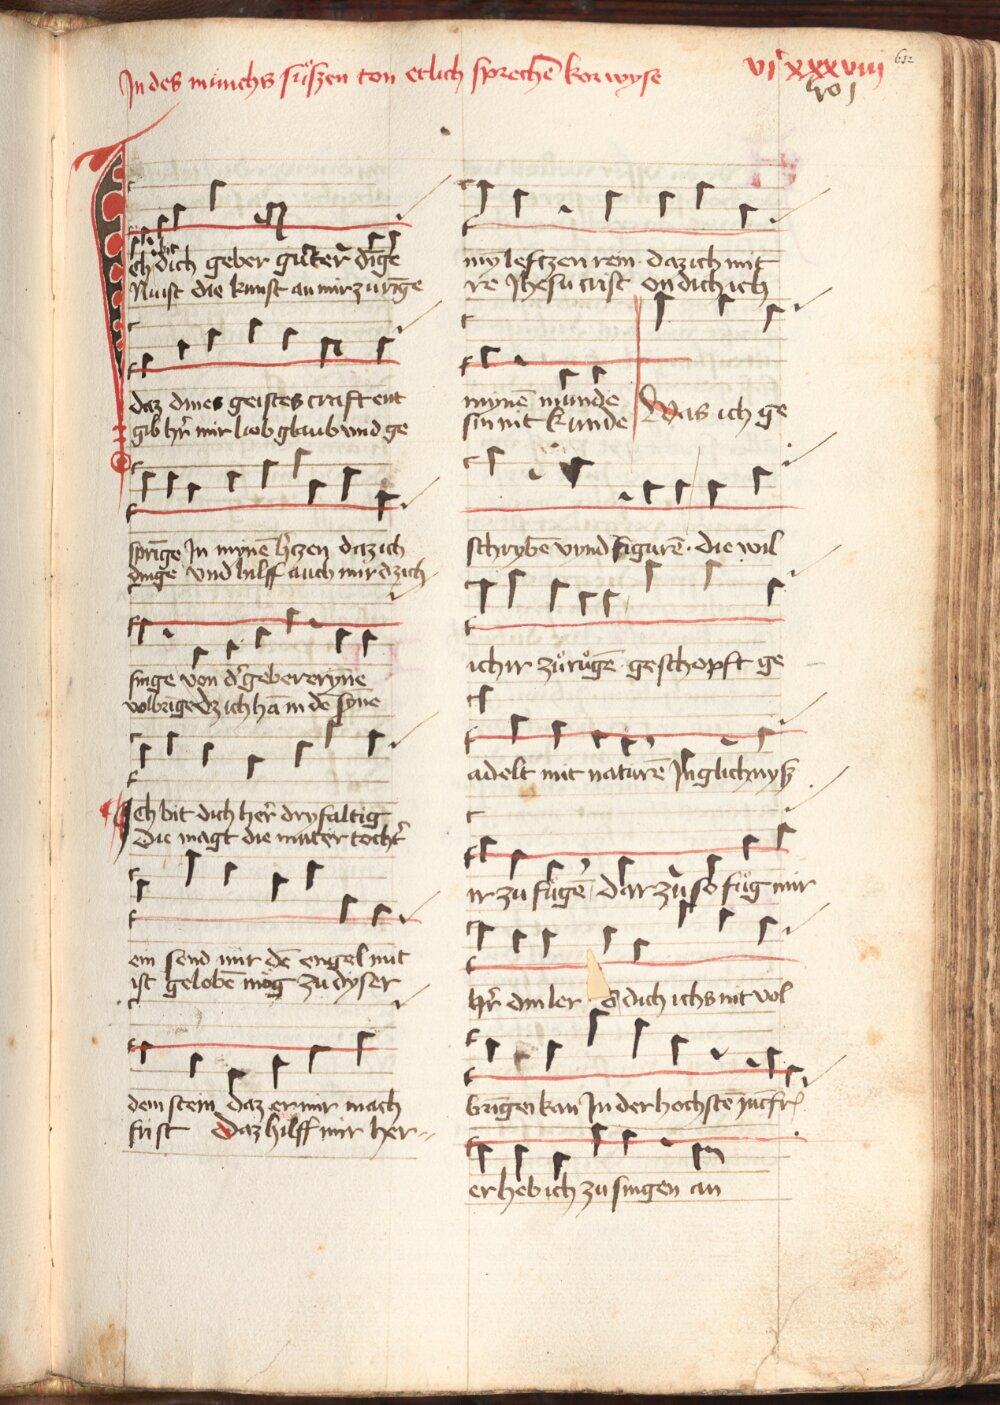 In des münchs süßen ton etlich sprechē korwyse
vi^c xxxviii
612
Ich dich geber guter dīge
Nuist die kunst an mir zu rīge
daz dines geistes craft ent
gib hr̄ mir lieb glaub vnd ge
sprīge In mynē h̓czen daz ich
dinge vnd hilff auch mir dz ich
singe von d̓ gebererynne
volbrīge dz ich hā in dē synne
Ich bit dich her̄ dryfaltig
Die magt die muter tocht̓
ein send mir dē engel mit
ist gelobē mög zu dyser
dem stein daz er mir mach
frist Daz hilff mir her
my lefczen rein · daz ich mit
re Jhesu crist on dich ich
mynē munde
sin nit kunde Was ich ge
schrybē vnnd figurē · die wil
ich ir zůrůgē geschopft ge
adelt mit naturē Jn glichnyß
ir zu fůgē dar zu so fůg mir
hr̄ din ler dich ichs nit vol
brīgen kan In der hochstē jūcfr
er heb ich zu singen an